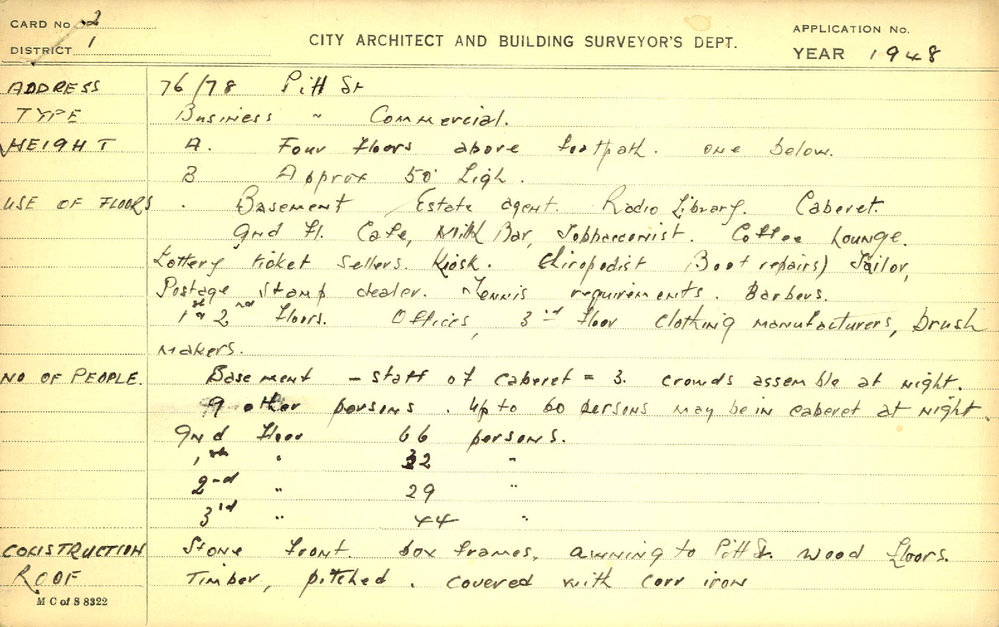 CARD No. 2
DISTRICT 1
CITY ARCHITECT AND BUILDING SURVEYOR'S DEPT.
APPLICATION No.
YEAR 1948
ADDRESS 76/78 Pitt St
TYPE Business " Commercial.
HEIGHT A. Four floors above footpath. one below.
B Approx 50' High.
USE OF FLOORS . Basement Estate agent. Radio Library. Caberet.
Gnd Fl. Cafe, Milk Bar, Tobbacconist. Coffee Lounge.
Lottery ticket sellers. Kiosk. Chiropodist Boot repairs) Tailor,
Postage stamp dealer. Tennis requirements. Barbers.
1st & 2nd floors. Offices, 3rd floor clothing manufacturers, brush
makers.
NO OF PEOPLE. Basement - staff of caberet = 3. crowds assemble at night.
9 other persons. up to 60 persons may be in caberet at night.
Gnd floor 66 persons.
1st " 32 "
2nd " 29 "
3rd " 44 "
CONSTRUCTION Stone front. box frames, awning to Pitt St. wood floors.
ROOF Timber, pitched. covered with corr iron
M C of S 8322